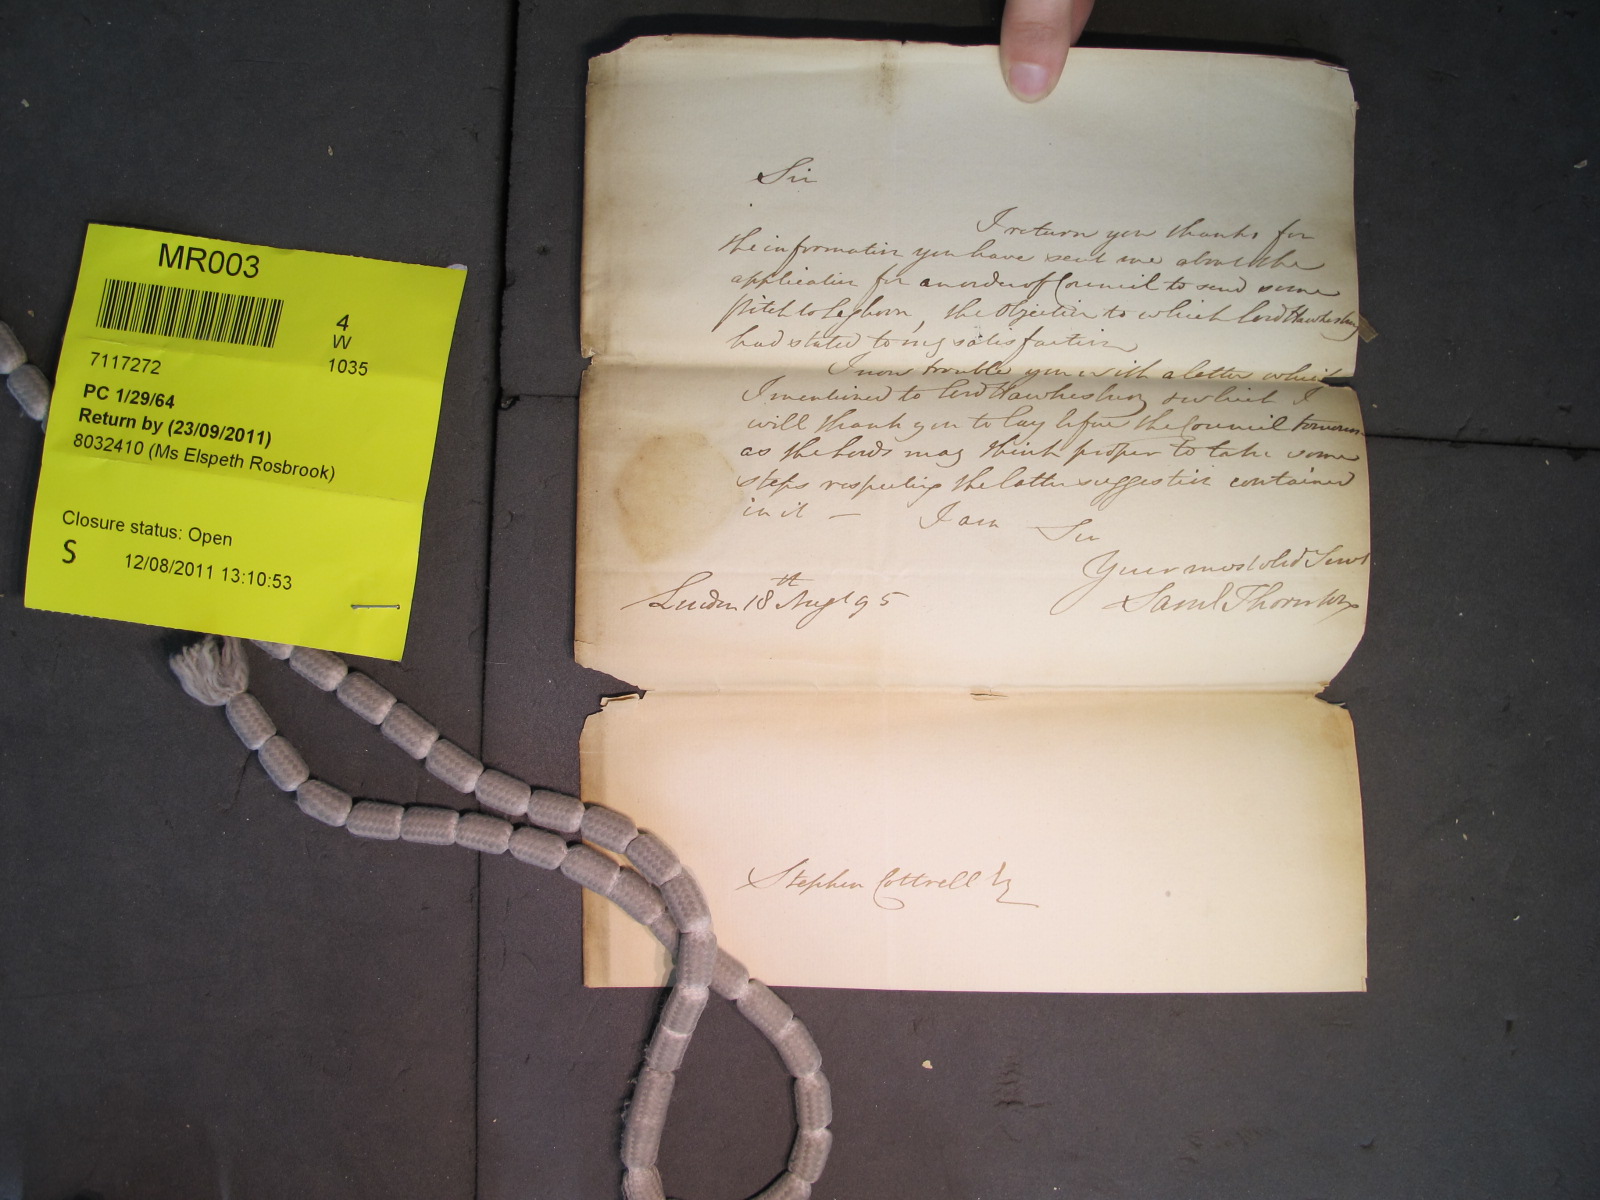 MR003
4
W
1035
7117272
PC 1/29/64
Return by (23/09/2011)
8032410 (Ms Elspeth Rosbrook)
Closure status: Open
S 12/08/2011 13:10:53
Sir
I return you thanks for
the information you have sent me about the
application for an order of Council to send some
Pitch to Leghorn, the Objection to which Lord Hawkesbury
had stated to my satisfaction
I now trouble you with a letter which
I mentioned to Lord Hawkesbury & which I
will thank you to lay before the Council tomorrow
as the Lords may think proper to take some
steps respecting the latter suggestion contained
in it — I am Sir
Your most obed Servt
London 18th Augt 95
Saml Thornton
Stephen Cottrell Esq